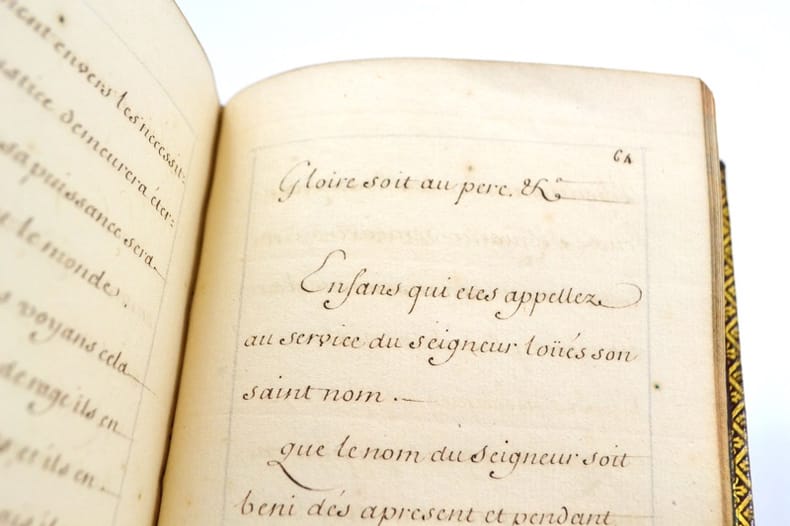 envers les necessit-
demeurera éter=
sa puissance sera
le monde.
voyans cela
rage ils en
et ils en
61
Gloire soit au pere. &c.ª
Enfans qui etes appellez
au service du seigneur loüés son
saint nom .
que le nom du seigneur soit
beni dés apresent et pendant